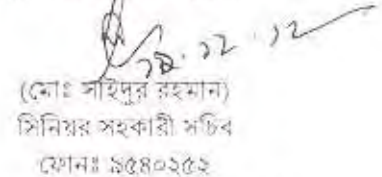 ১৪.১২.১২
(মোঃ সাইদুর রহমান)
সিনিয়র সহকারী সচিব
ফোনঃ ৯৫৪০২৫২